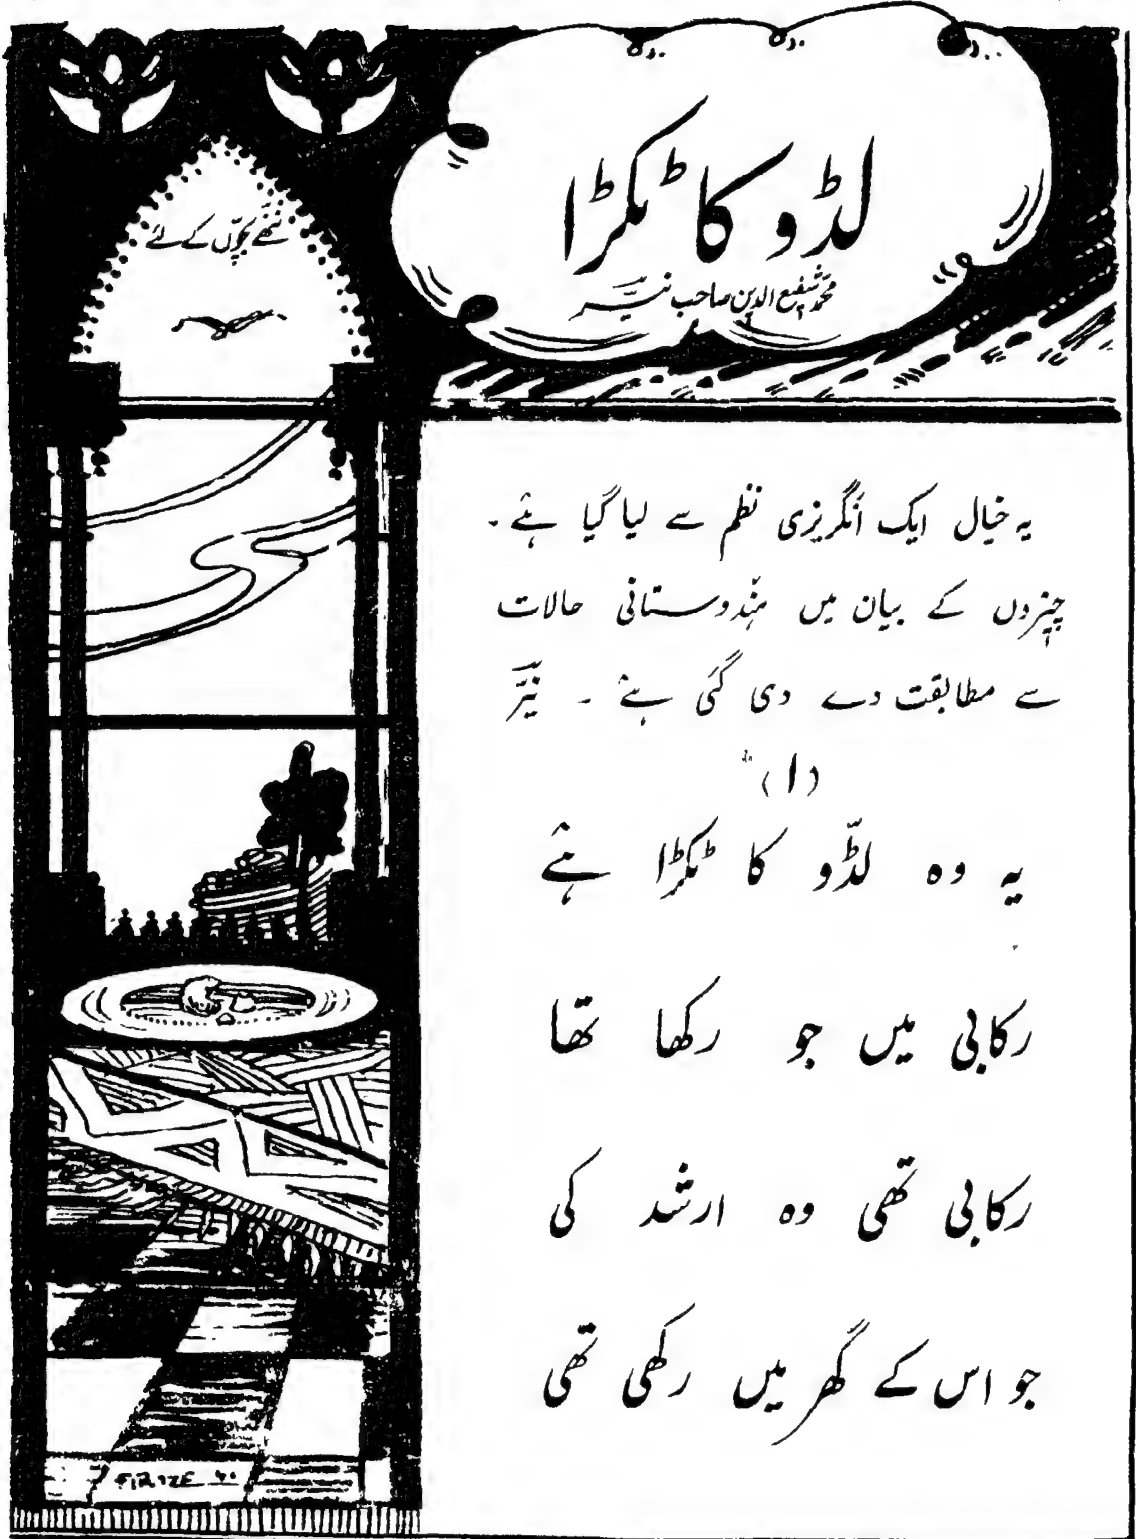 لڈو کا ٹکڑا
محمد شفیع الدین صاحب نیر
ننھے بچّوں کے لئے
یہ خیال ایک انگریزی نظم سے لیا گیا ہئے ۔
چیزوں کے بیان میں ہندوستانی حالات
سے مطابقت دے دی گئی ہئے ۔ نیّر
(۱)
یہ وہ لڈّو کا ٹکڑا ہئے
رکابی میں جو رکھا تھا
رکابی تھی وہ ارشد کی
جو اس کے گھر میں رکھی تھی
FIROZE